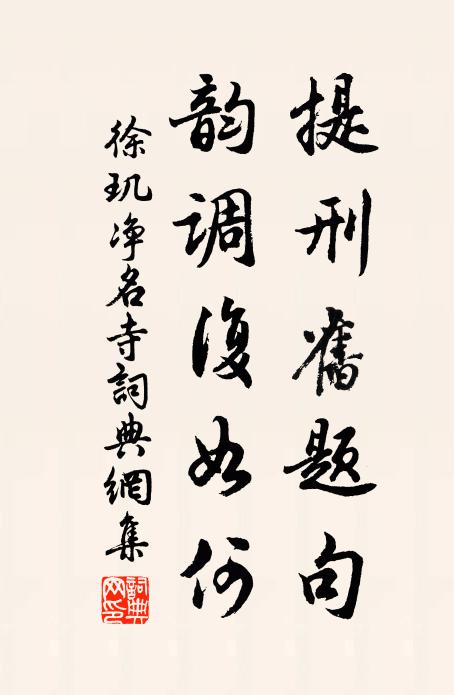 提刑舊题句
韵调復如何
徐玑净名寺詞典網集
詞典网印